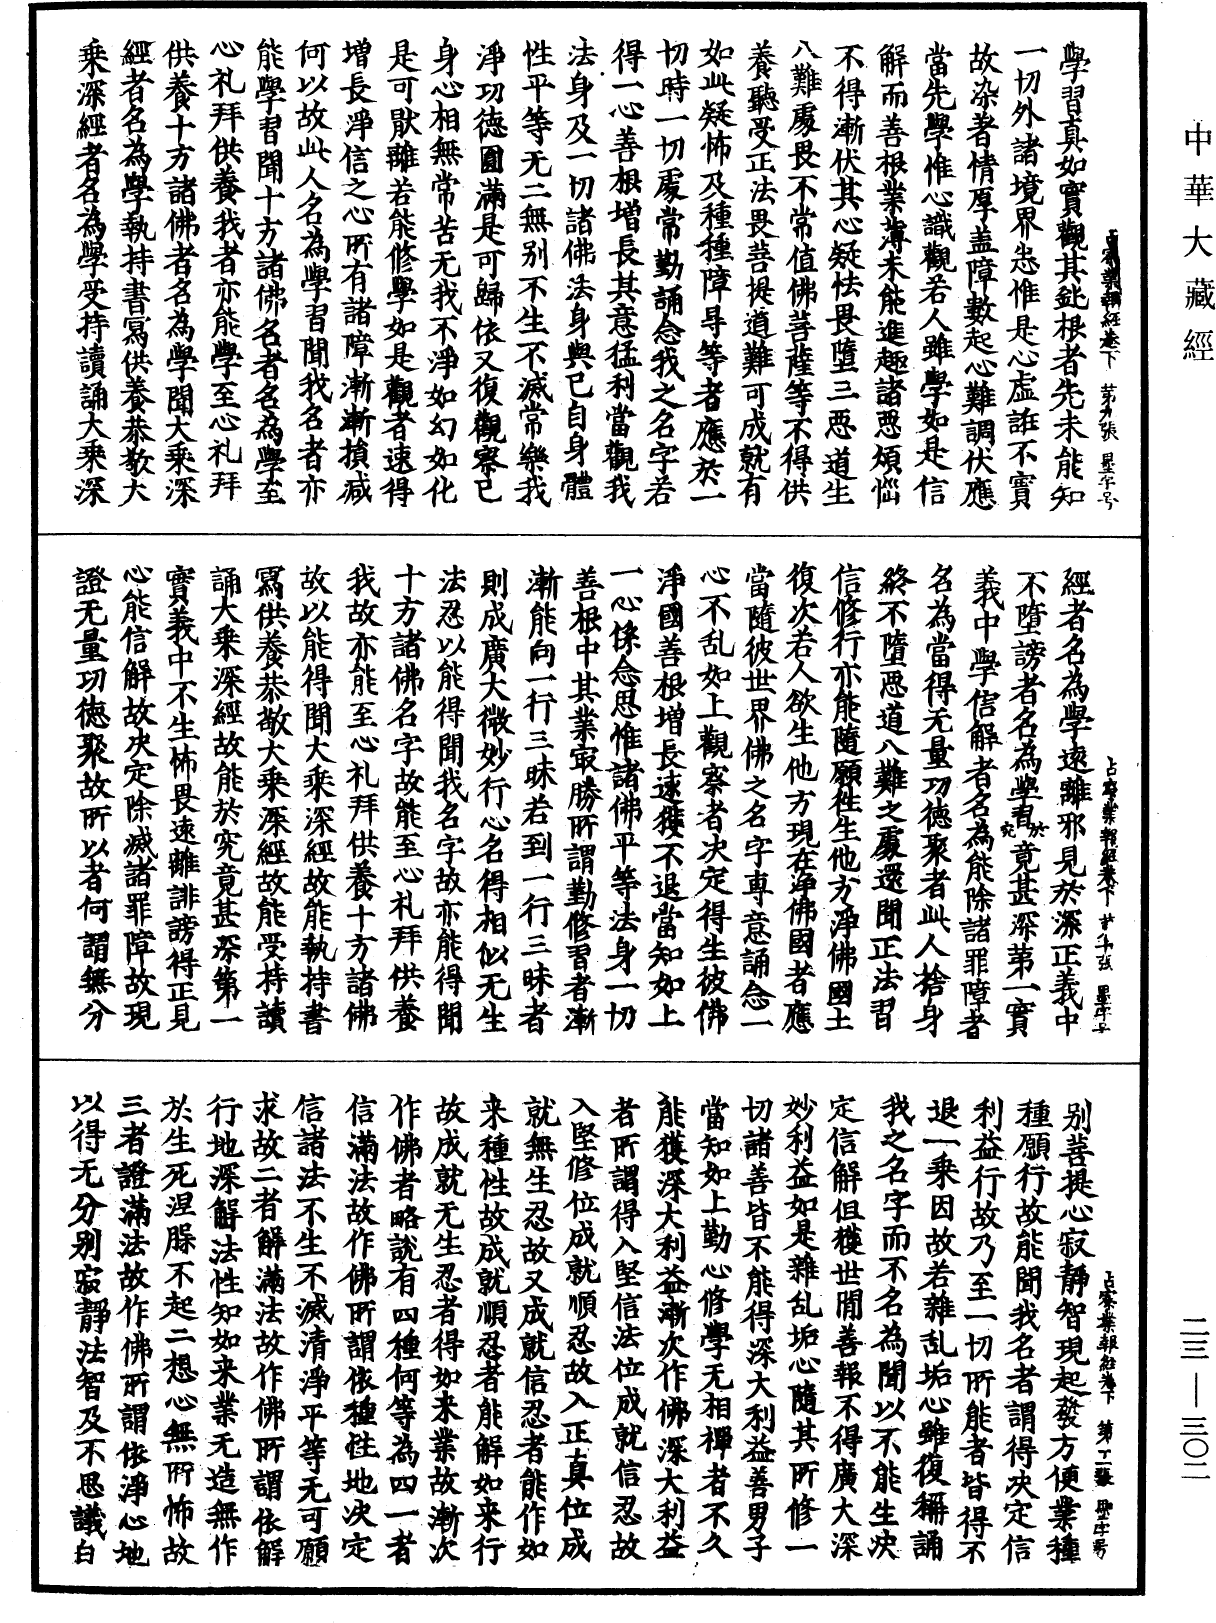 中華大藏經
學習真如實觀其鈍根者先未能知
一切外諸境界悉惟是心虛誑不實
故染著情厚蓋障數起心難調伏應
當先學惟心識觀若人雖學如是信
解而善根業薄未能進趣諸惡煩惱
不得漸伏其心疑怯畏墮三惡道生
八難處畏不常值佛菩薩等不得供
養聽受正法畏菩提道難可成就有
如此疑怖及種種障㝵等者應於一
切時一切處常勤誦念我之名字若
得一心善根增長其意猛利當觀我
法身及一切諸佛法身與己自身體
性平等无二無別不生不滅常樂我
淨功德圓滿是可歸依又復觀察己
身心相無常苦无我不淨如幻如化
是可猒離若能修學如是觀者速得
增長淨信之心所有諸障漸漸損減
何以故此人名為學習聞我名者亦
能學習聞十方諸佛名者名為學至
心礼拜供養我者亦能學至心礼拜
供養十方諸佛者名為學聞大乘深
經者名為學執持書寫供養恭敬大
乘深經者名為學受持讀誦大乘深
占察業報經卷下 第十張
經者名為學遠離邪見於深正義中
不墮謗者名為學者於究竟甚深第一實
義中學信解者名為能除諸罪障者
名為當得无量功德聚者此人捨身
終不墮惡道八難之處還聞正法習
信修行亦能隨願往生他方淨佛國土
復次若人欲生他方現在淨佛國者應
當隨彼世界佛之名字專意誦念一
心不乱如上觀察者決定得生彼佛
淨國善根增長速獲不退當知如上
一心係念思惟諸佛平等法身一切
善根中其業㝡勝所謂勤修習者漸
漸能向一行三昧若到一行三昧者
則成廣大微妙行心名得相似无生
法忍以能得聞我名字故亦能得聞
十方諸佛名字故能至心礼拜供養
我故亦能至心礼拜供養十方諸佛
故以能得聞大乘深經故能執持書
寫供養恭敬大乘深經故能受持讀
誦大乘深經故能於究竟甚深第一
實義中不生怖畏遠離誹謗得正見
心能信解故決定除滅諸罪障故現
證无量功德聚故所以者何謂無分
占察業報經卷下
別菩提心寂靜智現起發方便業種
種願行故能聞我名者謂得決定信
利益行故乃至一切所能者皆得不
退一乘因故若雜乱垢心雖復稱誦
我之名字而不名為聞以不能生決
定信解但獲世間善報不得廣大深
妙利益如是雜乱垢心隨其所修一
切諸善皆不能得深大利益善男子
當知如上勤心修學无相禪者不久
能獲深大利益漸次作佛深大利益
者所謂得入堅信法位成就信忍故
入堅修位成就順忍故入正真位成
就無生忍故又成就信忍者能作如
来種性故成就順忍者能解如来行
故成就无生忍者得如来業故漸次
作佛者略說有四種何等為四一者
信滿法故作佛所謂依種性地決定
信諸法不生不滅清淨平等无可願
求故二者解滿法故作佛所謂依解
行地深解法性知如来業无造無作
於生死涅槃不起二想心無所怖故
三者證滿法故作佛所謂依淨心地
以得无分別寂靜法智及不思議自
二三—三〇二